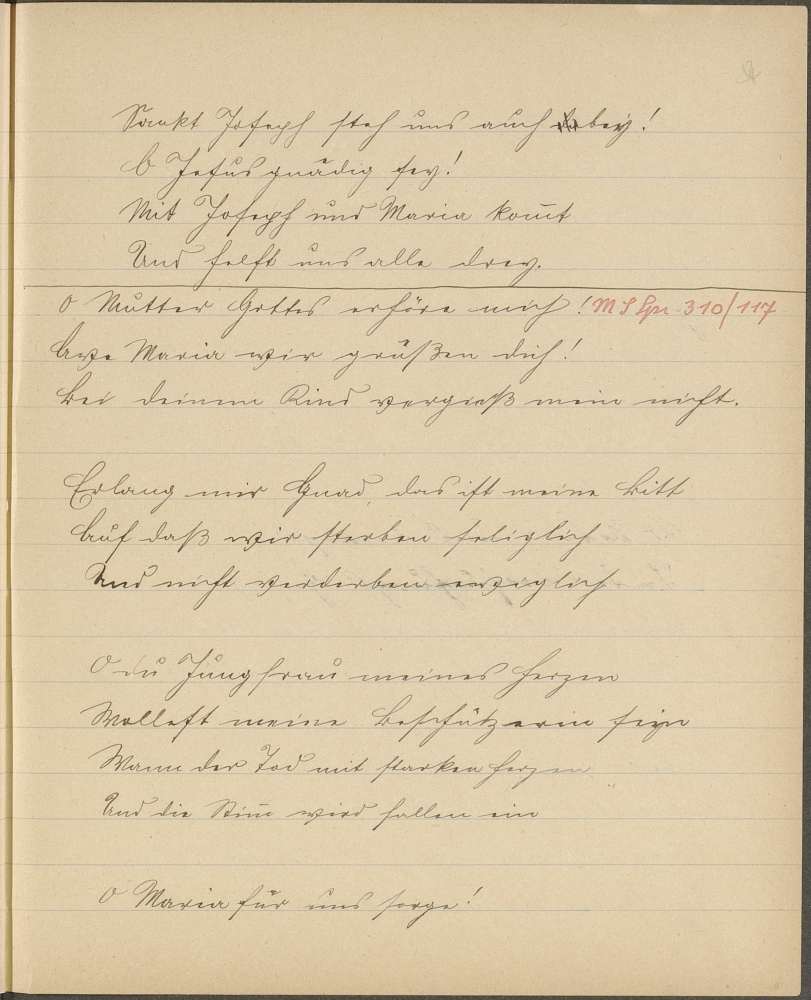 Sankt Joseph steh uns auch bey!
O Jesus gnädig sey!
Mit Joseph und Maria kom̄t
Und helft uns alle drey.
O Mutter Gottes erhöre mich! M S Spr 310/117
Ave Maria wir grüßen dich!
Bei deinem Kind vergieß mein nicht.
Erlang mir Gnad, das ist meine Bitt
Auf daß wir sterben seliglich
Und nicht verderben ewiglich
O du Jungfrau meines Herzen
Wollest meine Beschützerin seyn
Wann der Tod mit starken Herzen
Und die Stim̄ wird fallen ein
O Maria für uns sorge!